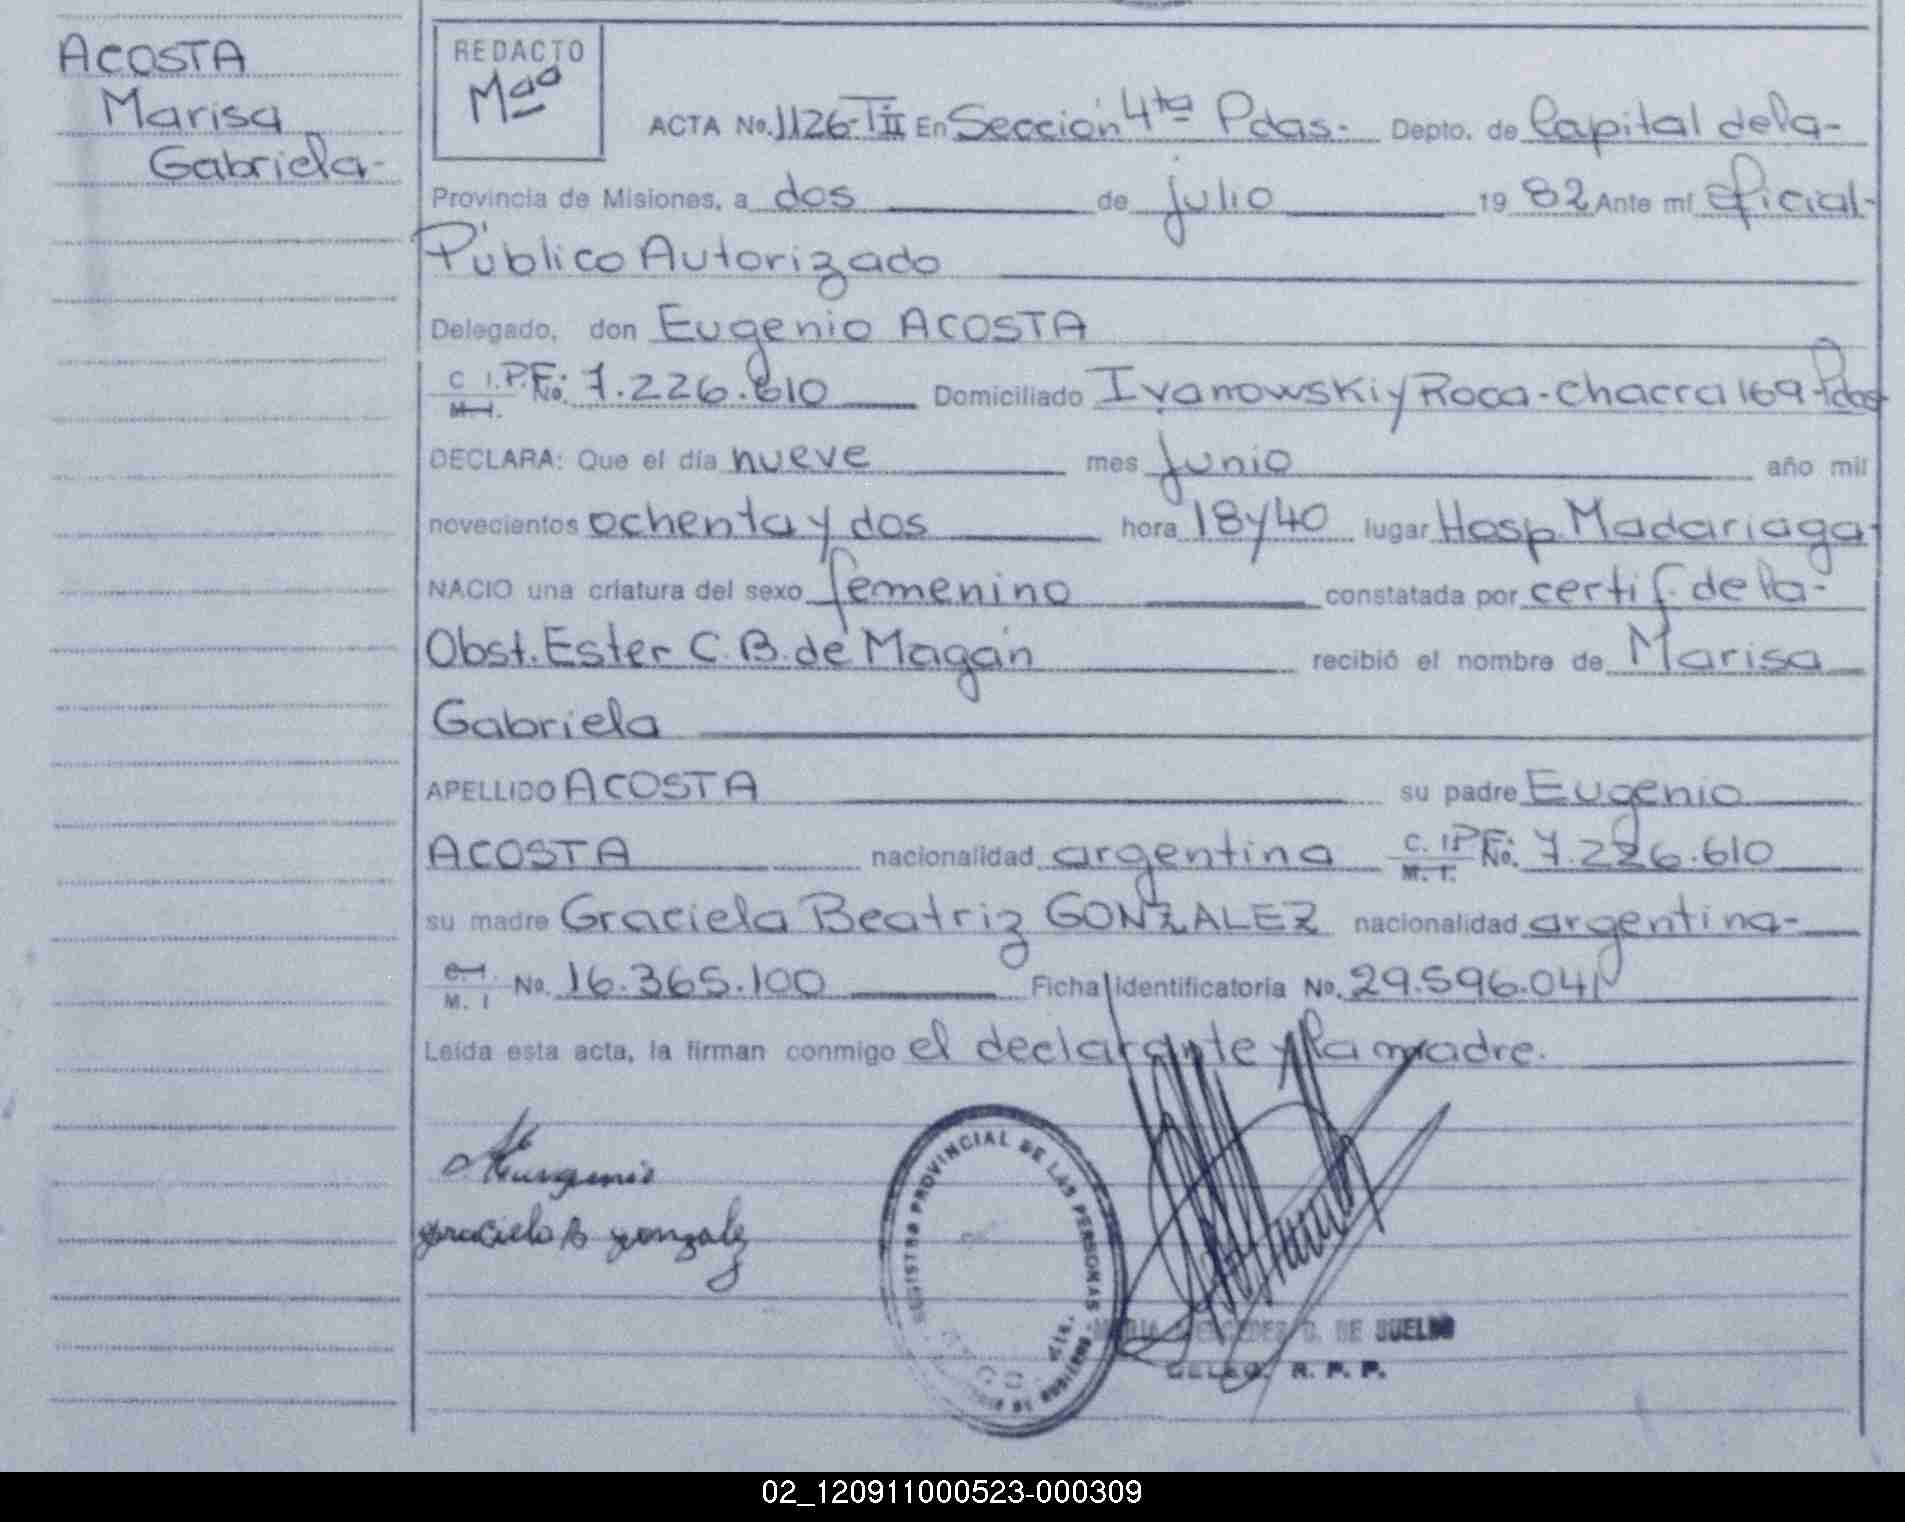 ACOSTA
Marisa
Gabriela-
REDACTO
Mªª
ACTA No. 1126-TII En Sección 4ta Pdas.- Depto. de Capital de la-
Provincia de Misiones, a dos de julio 1982 Ante mí oficial-
Público Autorizado
Delegado, don Eugenio ACOSTA
C.I.P.F. No. 7.226.610 Domiciliado Ivanowski y Roca-chacra 169-Pdas-
M.I.
DECLARA: Que el día nueve mes junio año mil
novecientos ochenta y dos hora 18y40 lugar Hosp. Madariaga-
NACIO una criatura del sexo femenino constatada por certif. de la-
Obst. Ester C. B. de Magán recibió el nombre de Marisa
Gabriela
APELLIDO ACOSTA su padre Eugenio
ACOSTA nacionalidad argentina C.I.P.F. No. 7.226.610
M.I.
su madre Graciela Beatriz GONZALEZ nacionalidad argentina-
C.I.
M. I No. 16.365.100 Ficha identificatoria No. 29.596.041
Leída esta acta, la firman conmigo el declarante y la madre.
Graciela B gonzalez
REGISTRO PROVINCIAL DE LAS PERSONAS
DE SUELDO
DELEG. R. P. P.
02_120911000523-000309